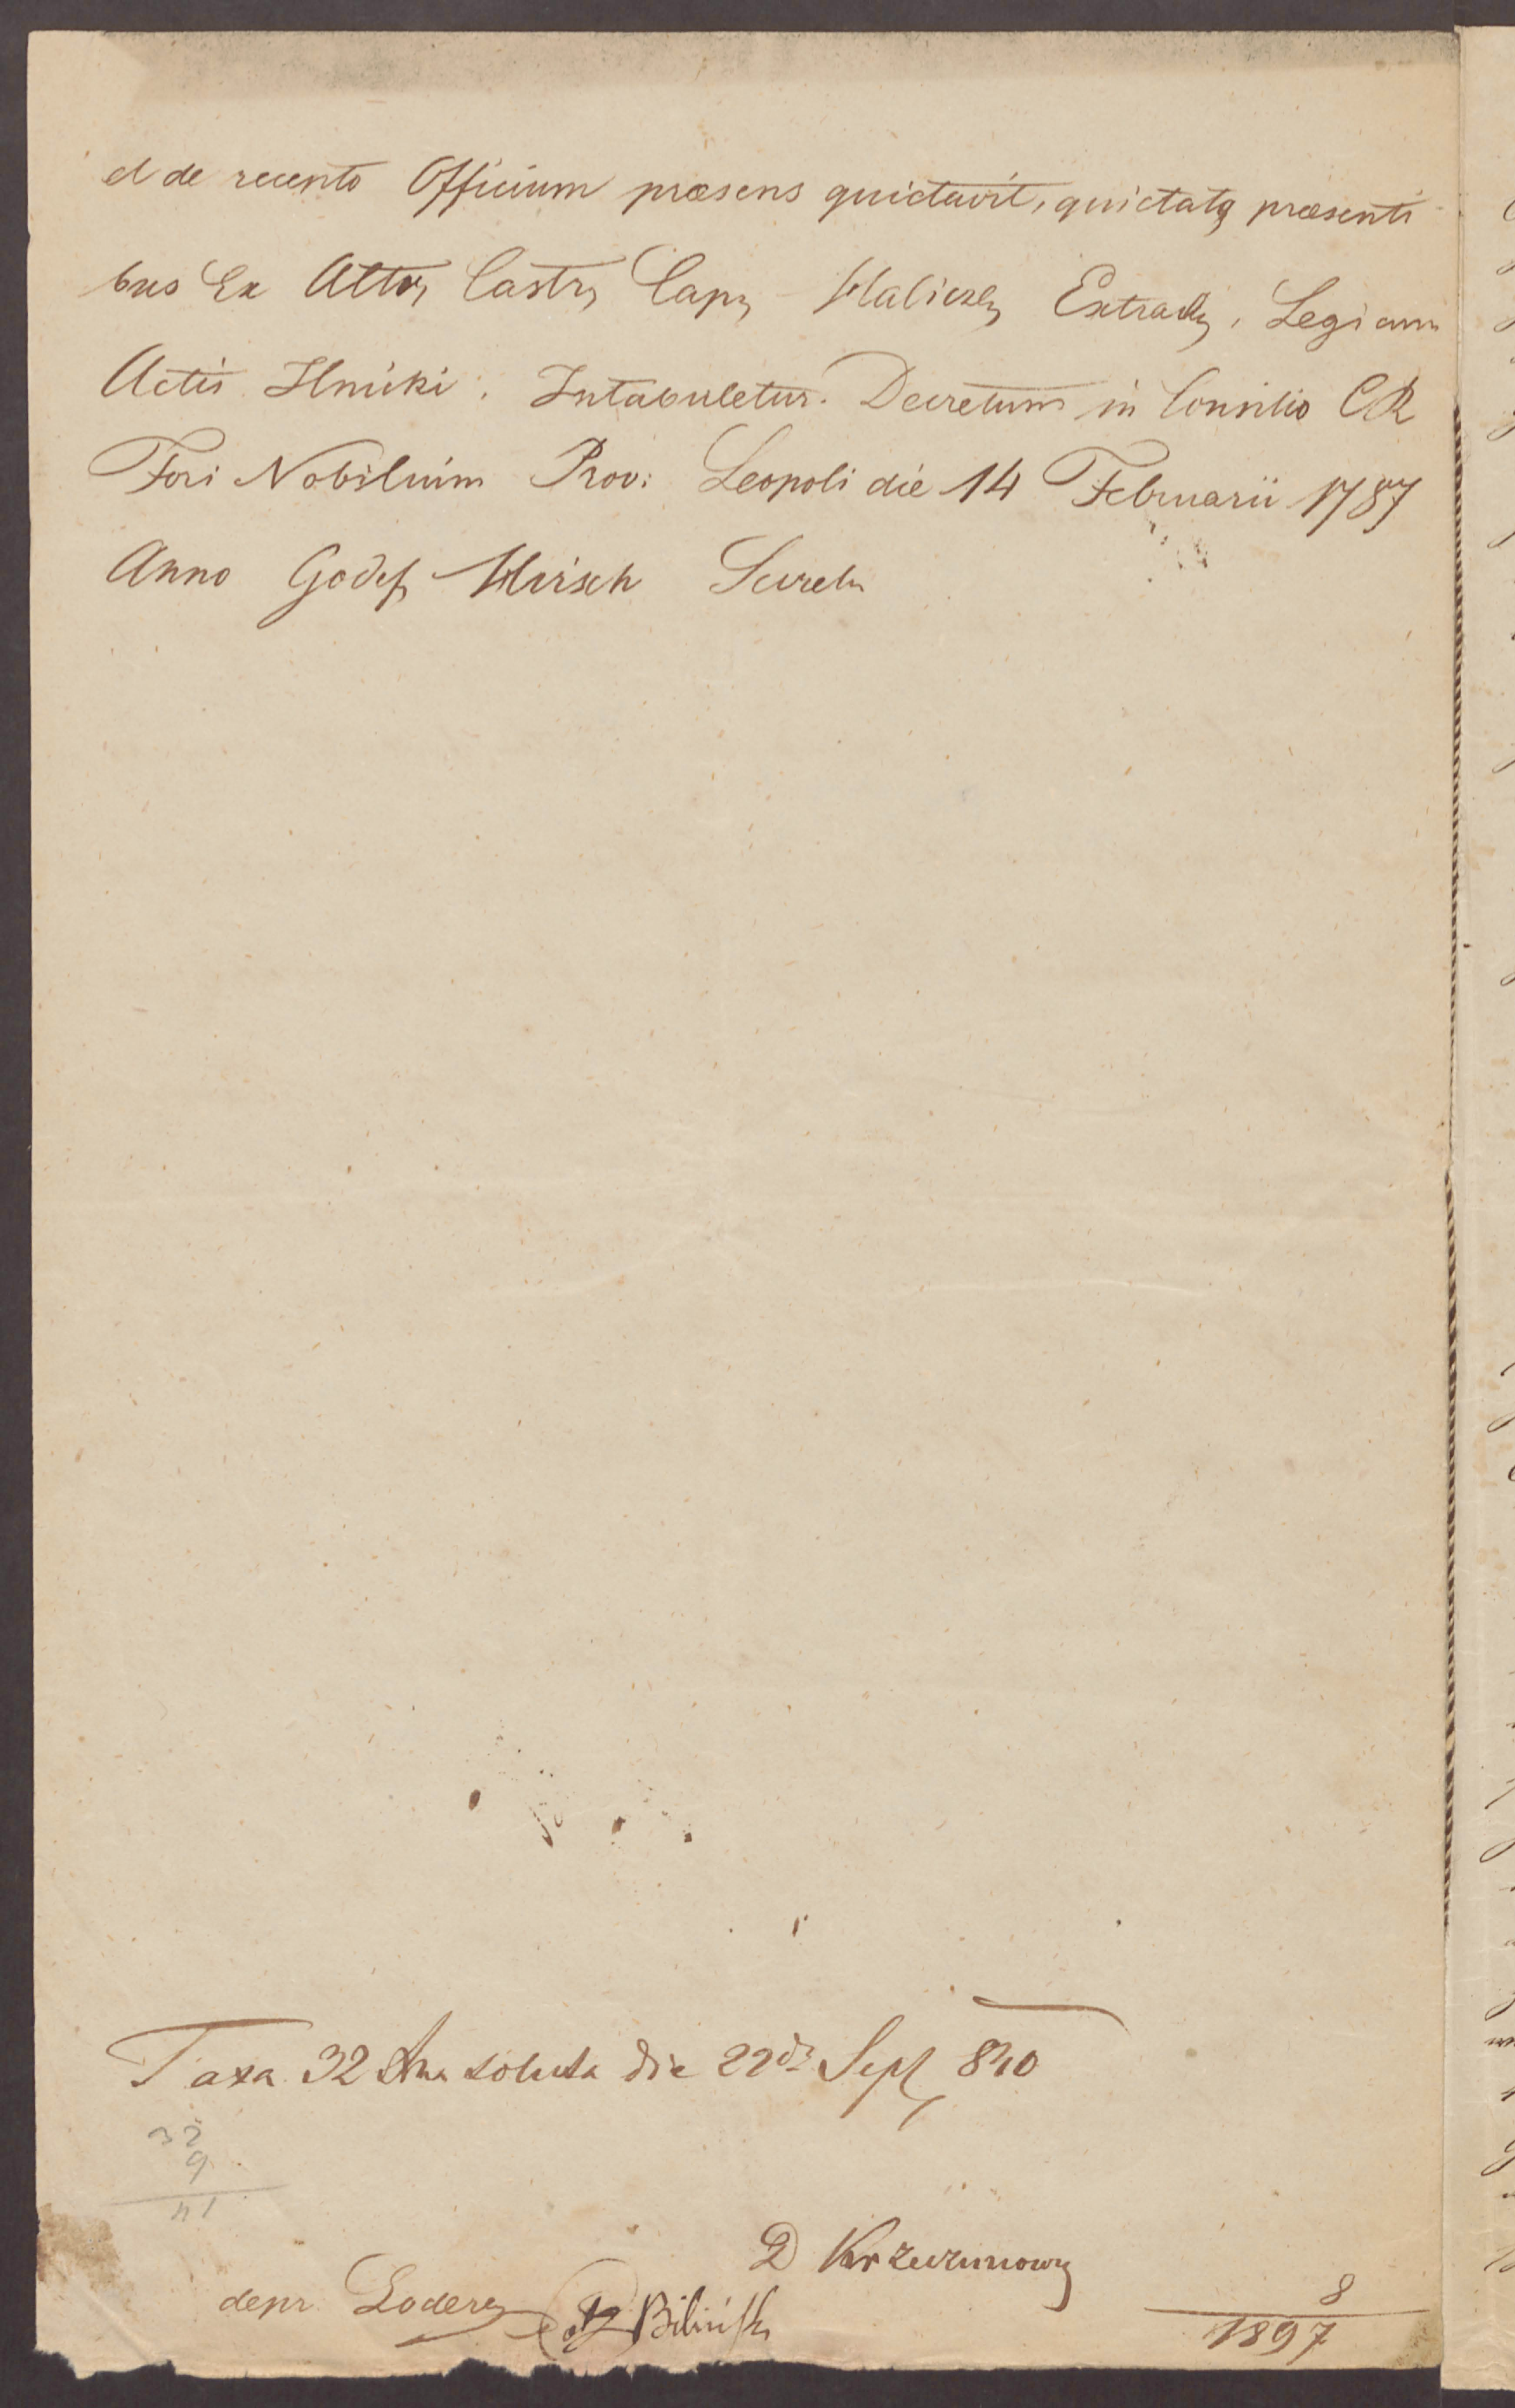 et de recepto Officium præsens quietavit, quietatq præsenti
bus Ex Actis Castr Cap Halicz Extrad, Legi cum
Actis Ilnicki. Intabuletur. Decretum in Consilio CR
Fori Nobilium Prov: Leopoli die 14 Februarii 1787
Anno Godef Hirsch Secret
Taxa 32 soluta die 22da Sept 840
32
9
41
D Krzeczunow
depr Bilińsk
8
1897